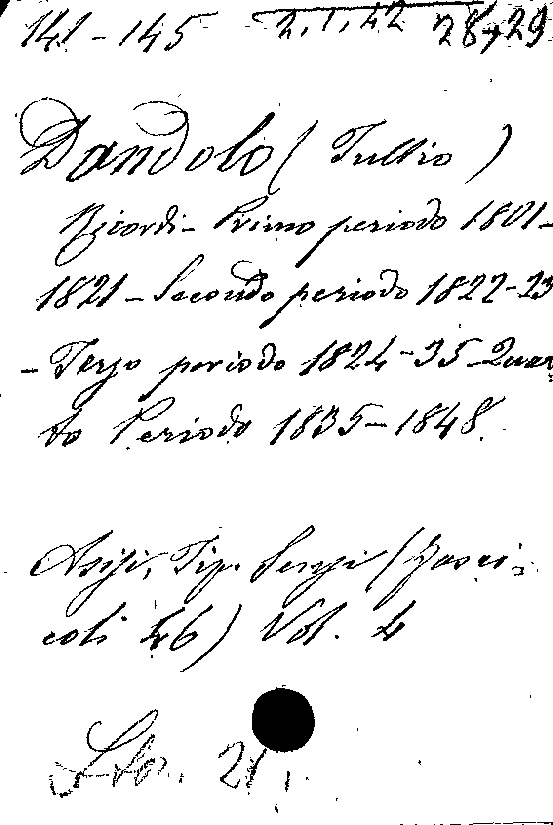 141-145 2.1.42 28,29
Dandolo (Tullio)
Ricordi - Primo periodo 1801-
1821 - Secondo periodo 1822-23
- Terzo periodo 1824-35 - Quar
to Periodo 1835-1848.
Assisi, Tip. Sensi (Fasci-
coli 46) Vol. 4
21.